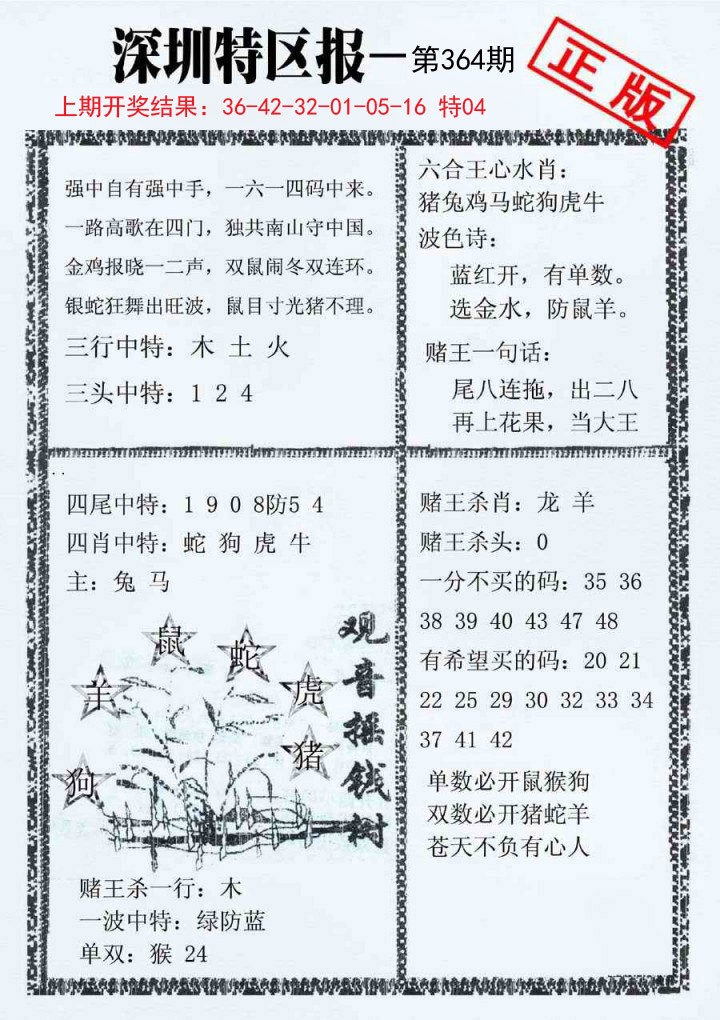 深圳特区报—第364期
正版
上期开奖结果：36-42-32-01-05-16 特04
强中自有强中手，一六一四码中来。
一路高歌在四门，独共南山守中国。
金鸡报晓一二声，双鼠闹冬双连环。
银蛇狂舞出旺波，鼠目寸光猪不理。
三行中特：木 土 火
三头中特：1 2 4
六合王心水肖：
猪兔鸡马蛇狗虎牛
波色诗：
蓝红开，有单数。
选金水，防鼠羊。
赌王一句话：
尾八连拖，出二八
再上花果，当大王
四尾中特：1 9 0 8防5 4
四肖中特：蛇 狗 虎 牛
主：兔 马
鼠
蛇
羊
虎
猪
狗
观音摇钱树
赌王杀一行：木
一波中特：绿防蓝
单双：猴 24
赌王杀肖：龙 羊
赌王杀头：0
一分不买的码：35 36
38 39 40 43 47 48
有希望买的码：20 21
22 25 29 30 32 33 34
37 41 42
单数必开鼠猴狗
双数必开猪蛇羊
苍天不负有心人